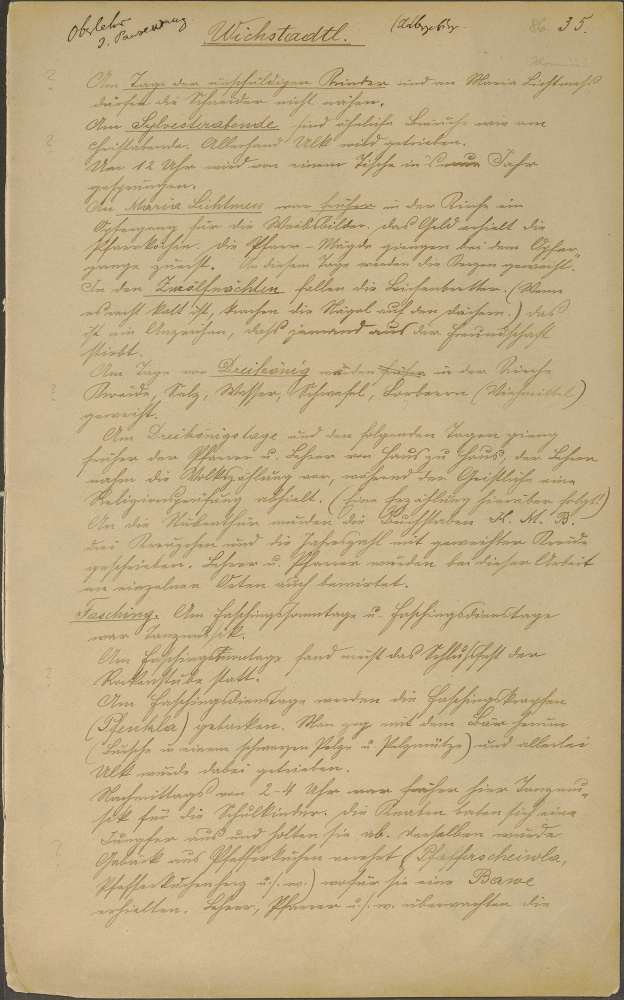 Oberlehr. J. Pausewang
Wichstadtl.
(Adlergebirge
35.
Am Tage der unschuldigen Kinder und an Maria Lichtmeß
dürfen die Schneider nicht nähen.
Am Sylvesterabende sind ähnliche Bräuche wie am
Christabende. Allerhand Ulk wird getrieben.
Um 12 Uhr wird von einem Tische in's neue Jahr
gesprungen.
An Maria Lichtmess war früher in der Kirche ein
Opfergang für die Weibsbilder. Das Geld erhielt die
Pfarrköchin. Die Pfarr-Mägde giengen bei dem Opfer-
gange zuerst. An diesem Tage werden die Kerzen geweiht.
In den Zwölfnächten fallen die Leichenbretter. (Wenn
es recht kalt ist, krachen die Nägel auf den Dächern.) Das
ist ein Anzeichen, daß jemand aus der Freundschaft
stirbt.
Am Tage vor Dreikönig werden früher in der Kirche
Kreide, Salz, Wasser, Schwefel, Lorbeern (Viehmittel)
geweiht.
Am Dreikönigstage und den folgenden Tagen gieng
früher der Pfarrer u. Lehrer von Haus zu Haus, der Lehrer
nahm die Volkszählung vor, während der Geistliche eine
Religionsprüfung abhielt. (Eine Erzählung hierüber folgt!)
An die Stubenthür wurden die Buchstaben K. M. B.
drei Kreuzchen und die Jahreszahl mit geweihter Kreide
geschrieben. Lehrer u. Pfarrer wurden bei dieser Arbeit
an einzelnen Orten auch bewirtet.
Fasching. Am Faschingssonntage u. Faschingsdienstage
war Tanzmusik.
Am Faschingssonntage fand meist das Schlußfest der
Rockenstube statt.
Am Faschingsdienstage werden die Faschingskrapfen
(Pfenkla) gebacken. Man zog mit dem Bär herum
(Bursche in einem schwarzen Pelze u. Pelzmütze) und allerlei
Ulk wurde dabei getrieben.
Nachmittags von 2-4 Uhr war früher hier Tanzmu-
sik für die Schulkinder. Die Knaben baten sich eine
Jungfer aus und holten sie ab. Derselben wurde
Gebäck aus Pfefferkuchen verehrt (Pfafferscheiwla,
Pfefferkuchenherz u.s.w.) wofür sie eine Bawe
erhielten. Lehrer, Pfarrer u.s.w. überwachten die